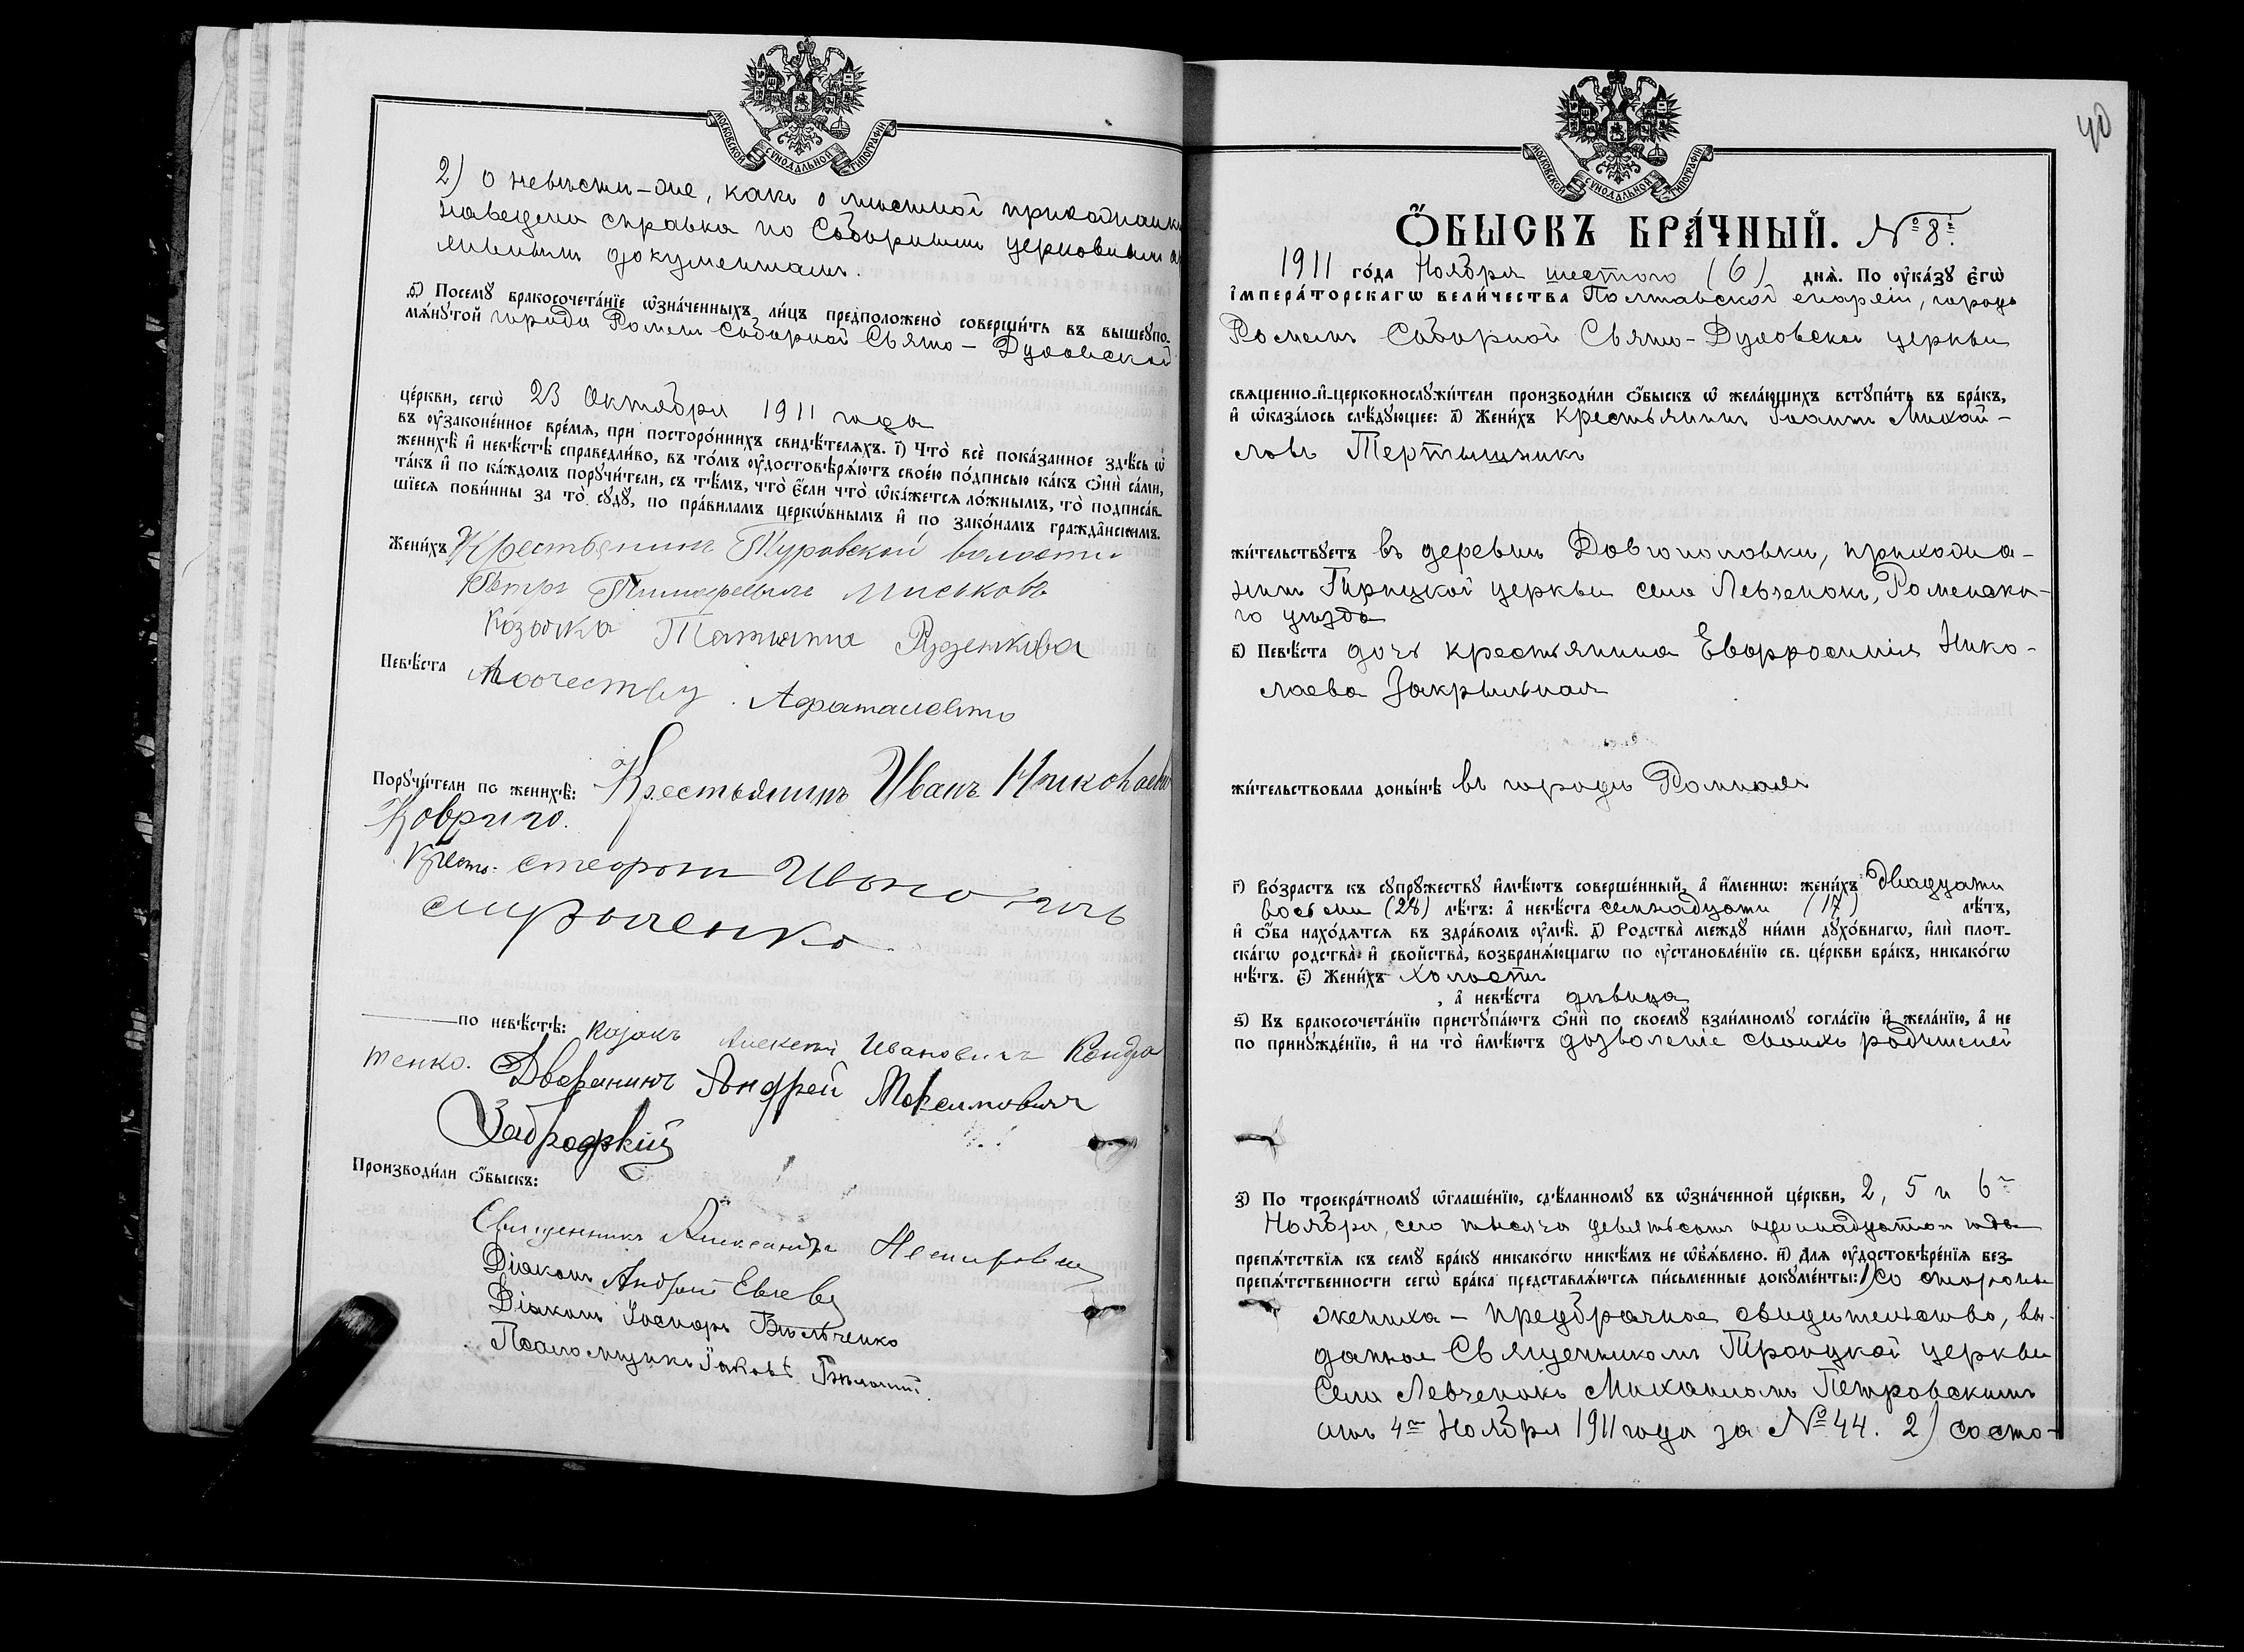 МОСКОВСКОЙ СУНОДАЛЬНОЙ ТИПОГРАФІИ
2) о невѣстѣ-же, какъ о мѣстной прихожанкѣ
наведена справка по Соборнымъ церковнымъ
документамъ.
ѳ) Посемꙋ бракосочета́нїе ѡзна́ченныхъ ли́цъ предположено̀ соверши́ть въ вышеꙋпо-
мѧ́нꙋтой города Роменъ Соборной Свято-Духовской
це́ркви, сегѡ̀ 23 Октября 1911 года
въ ᲂу҆зако́ненное вре́мѧ, при посторо́ннихъ свидѣ́телѧхъ. і҃) Что̀ всѐ пока́занное здѣ́сь ѡ҆
женихѣ̀ и҆ невѣ́стѣ справедли́во, въ то́мъ ᲂу҆достовѣрѧ́ютъ свое́ю по́дписью ка́къ ѻ҆нѝ са́ми,
та́къ и҆ по ка́ждомъ порꙋчи́тели, съ тѣ́мъ, что̀ є҆́сли что̀ ѡ҆ка́жетсѧ ло́жнымъ, то̀ подписа́в-
шїесѧ пови́нны за то̀ сꙋдꙋ̀, по пра́виламъ церкѡ́внымъ и҆ по зако́намъ гражда̑нскимъ.
Жени́хъ Крестьянинъ Туровской волости
Петръ Тимофеевичъ Миськовъ
Козачка Татьяна Руденкова
Невѣ́ста Аточеству Афанасиевно
Порꙋчи́тели по женихѣ̀: Крестьянинъ Иванъ Николаевъ
Коврига.
Крест. Стефанъ Иванович
по невѣ́стѣ: Козакъ Алексей Ивановичъ Кондра
тенко. Дворянинъ Андрей Максимовичъ
Забродскій
Производи́ли ѻ҆́быскъ:
Священникъ Александръ
Діаконъ Андрей
Діаконъ Іосифъ Бѣльченко
Псаломщикъ Іаковъ
40
МОСКОВСКОЙ СУНОДАЛЬНОЙ ТИПОГРАФІИ
Ѻ҆́БЫСКЪ БРА́ЧНЫЙ. № 8й
1911 го́да Ноября шестого (6) днѧ̀. По ᲂу҆ка́зꙋ є҆гѡ̀
і҆мпера́торскагѡ вели́чества Полтавской епархіи, города
Роменъ Соборной Свято-Духовской церкви
свѧщенно-и҆-церковнослꙋжи́тели производи́ли ѻ҆́быскъ ѡ҆ жела́ющихъ встꙋпи́ть въ бра́къ,
и҆ ѡ҆каза́лось слѣ́дꙋющее: а҃) Жени́хъ Крестьянинъ Иванъ Михай-
ловъ Тертышникъ
жи́тельствꙋетъ въ деревнѣ Довгополовки, прихожа-
нинъ Троицкой церкви села Левченокъ, Роменска-
го уѣзда
в҃) Невѣ́ста дочь крестьянина Евфросинія Нико-
лаева Закрыльная
жи́тельствовала доны́нѣ въ городѣ Ромнахъ
г҃) Во́зрастъ къ сꙋпрꙋ́жествꙋ и҆мѣ́ютъ соверше́нный, а҆ и҆́меннѡ: жени́хъ двадцати
восьми (28) лѣ́тъ: а҆ невѣ́ста семнадцати (17) лѣ́тъ,
и҆ ѻ҆́ба нахо́дѧтсѧ въ здра́вомъ ᲂу҆мѣ̀. д҃) Родства̀ междꙋ ни́ми дꙋхо́внагѡ, и҆лѝ плот-
ска́гѡ родства̀ и҆ сво́йства̀, возбранѧ́ющагѡ по ᲂу҆становле́нїю св. це́ркви бра́къ, никако́гѡ
нѣ́тъ. є҃) Жени́хъ холостъ
, а҆ невѣ́ста дѣвица
ѕ҃) Къ бракосочета́нїю пристꙋпа́ютъ ѻ҆нѝ по своемꙋ̀ взаи́мномꙋ согла́сїю и҆ жела́нїю, а҆ не
по принꙋжде́нїю, и҆ на то̀ и҆мѣ́ютъ дозволеніе своихъ родителей
з҃) По троекра́тномꙋ ѡ҆глаше́нїю, сдѣ́ланномꙋ въ ѡ҆зна́ченной це́ркви, 2, 5 и 6го
Ноября, сего тысяча девятьсотъ одиннадцатаго года
препѧ́тствїѧ къ семꙋ̀ бра́кꙋ никако́гѡ никѣ́мъ не ѡ҆б̾ѧ́влено. и҃) Для ᲂу҆достовѣре́нїѧ без-
препѧ́тственности сегѡ̀ бра́ка представлѧ́ютсѧ пи́сьменные докꙋме́нты: 1) Со стороны
жениха - предбрачное свидѣтельство, вы-
данное Священникомъ Троицкой церкви
села Левченокъ Михаиломъ Петровскимъ
отъ 4го Ноября 1911 года за № 44. 2) со сто-